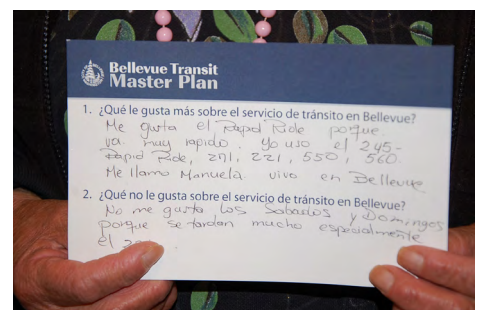 Bellevue Transit
Master Plan
1. ¿Qué le gusta más sobre el servicio de tránsito en Bellevue?
Me gusta el Rapid Ride porque
va muy rapido. Yo uso el 245-
Rapid Ride, 271, 221, 550, 560
Me llamo Manuela vivo en Bellevue
2. ¿Qué no le gusta sobre el servicio de tránsito en Bellevue?
No me gusta los Sabados y Domingos
porque se tardan mucho especialmente
el